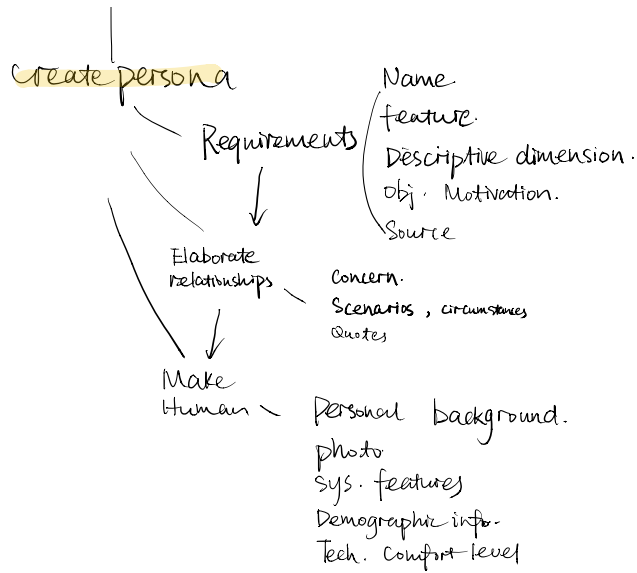 Create persona
Requirements
Name.
feature.
Descriptive dimension.
Obj. Motivation.
Source
Elaborate
relationships
Concern.
Scenarios, circumstances
Quotes
Make
Human
Personal background.
photo
sys. features
Demographic info.
Tech. Comfort level